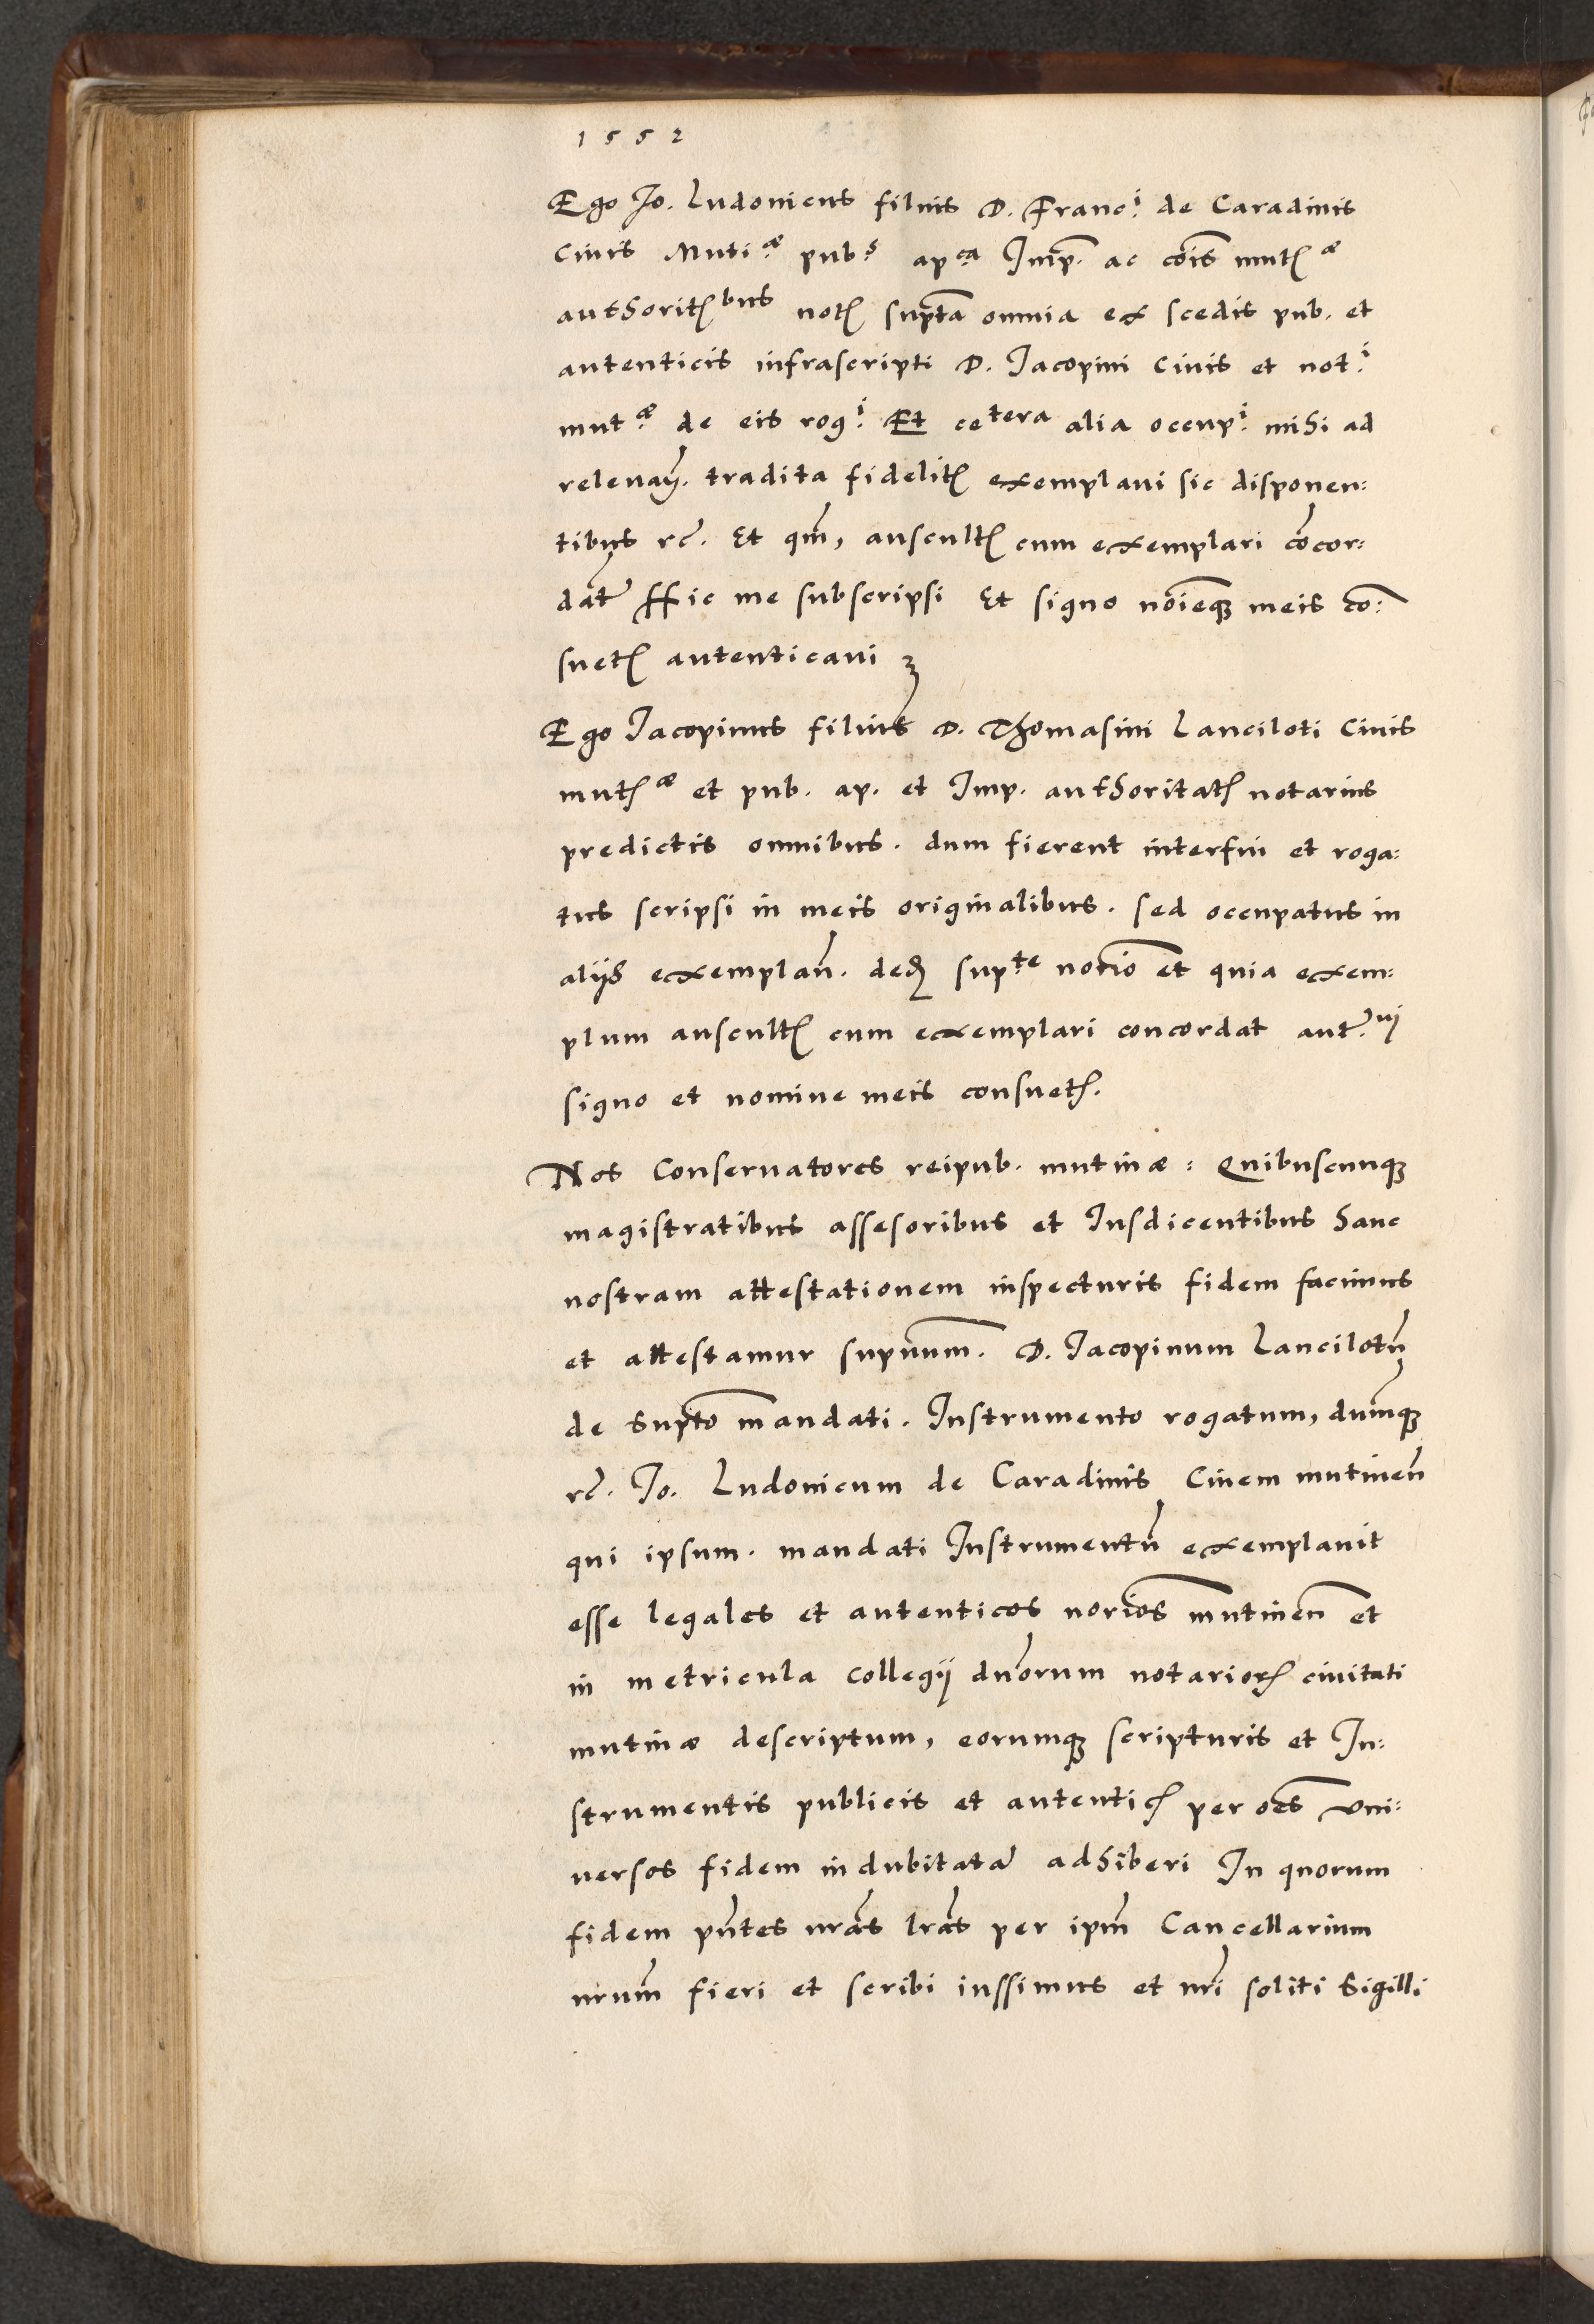 1552
Ego Jo. Ludouicus filius D. Franc.i de Caradinis
Ciuis Muti.æ pub.s ap.ca Imp. ac cōis mut.æ
authorit.bus not. sup̄ta omnia ex scedis pub. et
autenticis infrascripti D. Iacopini Ciuis et not.i
mut.æ de eis rog.i Et cetera alia occup.i mihi ad
releuan̄. tradita fidelit. exemplaui sic disponen:
tibus rc̄. Et qm̄, auscult. cum exemplari cōcor:
dāt Hic me subscripsi Et signo nōieq3 meis cō:
suet. autenticaui
Ego Iacopinus filius D. Thomasini Lanciloti Ciuis
mut.æ et pub. ap. et Imp. authoritat. notarius
predictis omnibus. dum fierent interfui et roga:
tus scripsi in meis originalibus. sed occupatus in
alijs exemplan̄. dedi sup.te notio et quia exem:
plum auscult. cum exemplari concordat aut.ui
signo et nomine meis consuet.
Nos Conseruatores reipub. mutinæ: Quibuscunq3
magistratibus assesoribus et Iusdicentibus hanc
nostram attestationem inspecturis fidem facimus
et attestamur sup̄num. D. Iacopinum Lancilotū
de sup̄to mandati. Instrumento rogatum, dumq3
rc̄. Jo. Ludouicum de Caradinis Ciuem mutinen̄
qui ipsum. mandati Instrumentū exemplauit
esse legales et autenticos norios mutinen̄ et
in metricula Collegij dnōrum notarior. ciuitati
mutinæ descriptum, eorumq3 scripturis et In:
strumentis publicis et autentic. per oēs vni:
uersos fidem indubitatā adhiberi In quorum
fidem pn̄tes nrās lrās per ipm̄ Cancellarium
nrum̄ fieri et scribi iussimus et nr̄i soliti sigilli